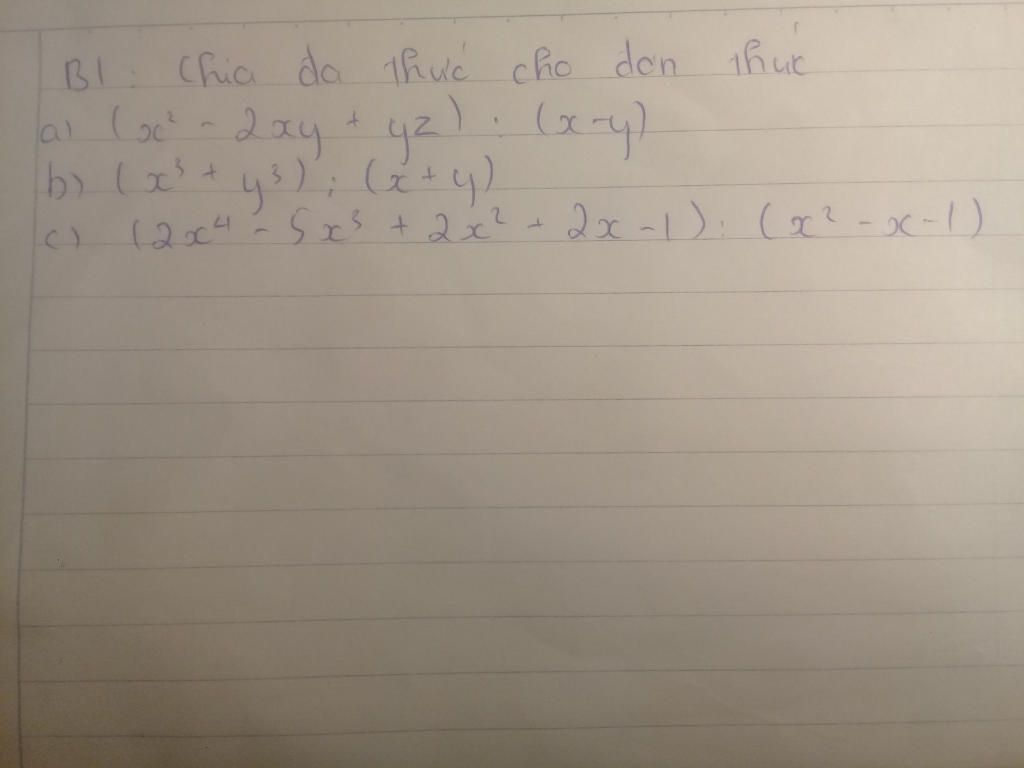 B1: Chia đa thức cho đơn thức
a) (x² - 2xy + yz) : (x-y)
b) (x³ + y³) : (x + y)
c) (2x⁴ - 5x³ + 2x² + 2x - 1) : (x² - x - 1)